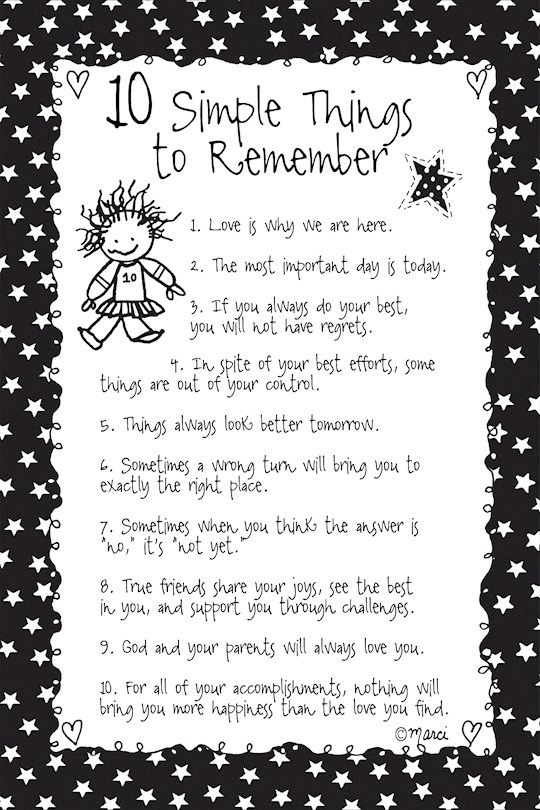 10 Simple Things
to Remember
10
1. Love is why we are here.
2. The most important day is today.
3. If you always do your best,
you will not have regrets.
4. In spite of your best efforts, some
things are out of your control.
5. Things always look better tomorrow.
6. Sometimes a wrong turn will bring you to
exactly the right place.
7. Sometimes when you think the answer is
"no," it's "not yet."
8. True friends share your joys, see the best
in you, and support you through challenges.
9. God and your parents will always love you.
10. For all of your accomplishments, nothing will
bring you more happiness than the love you find.
©Marci